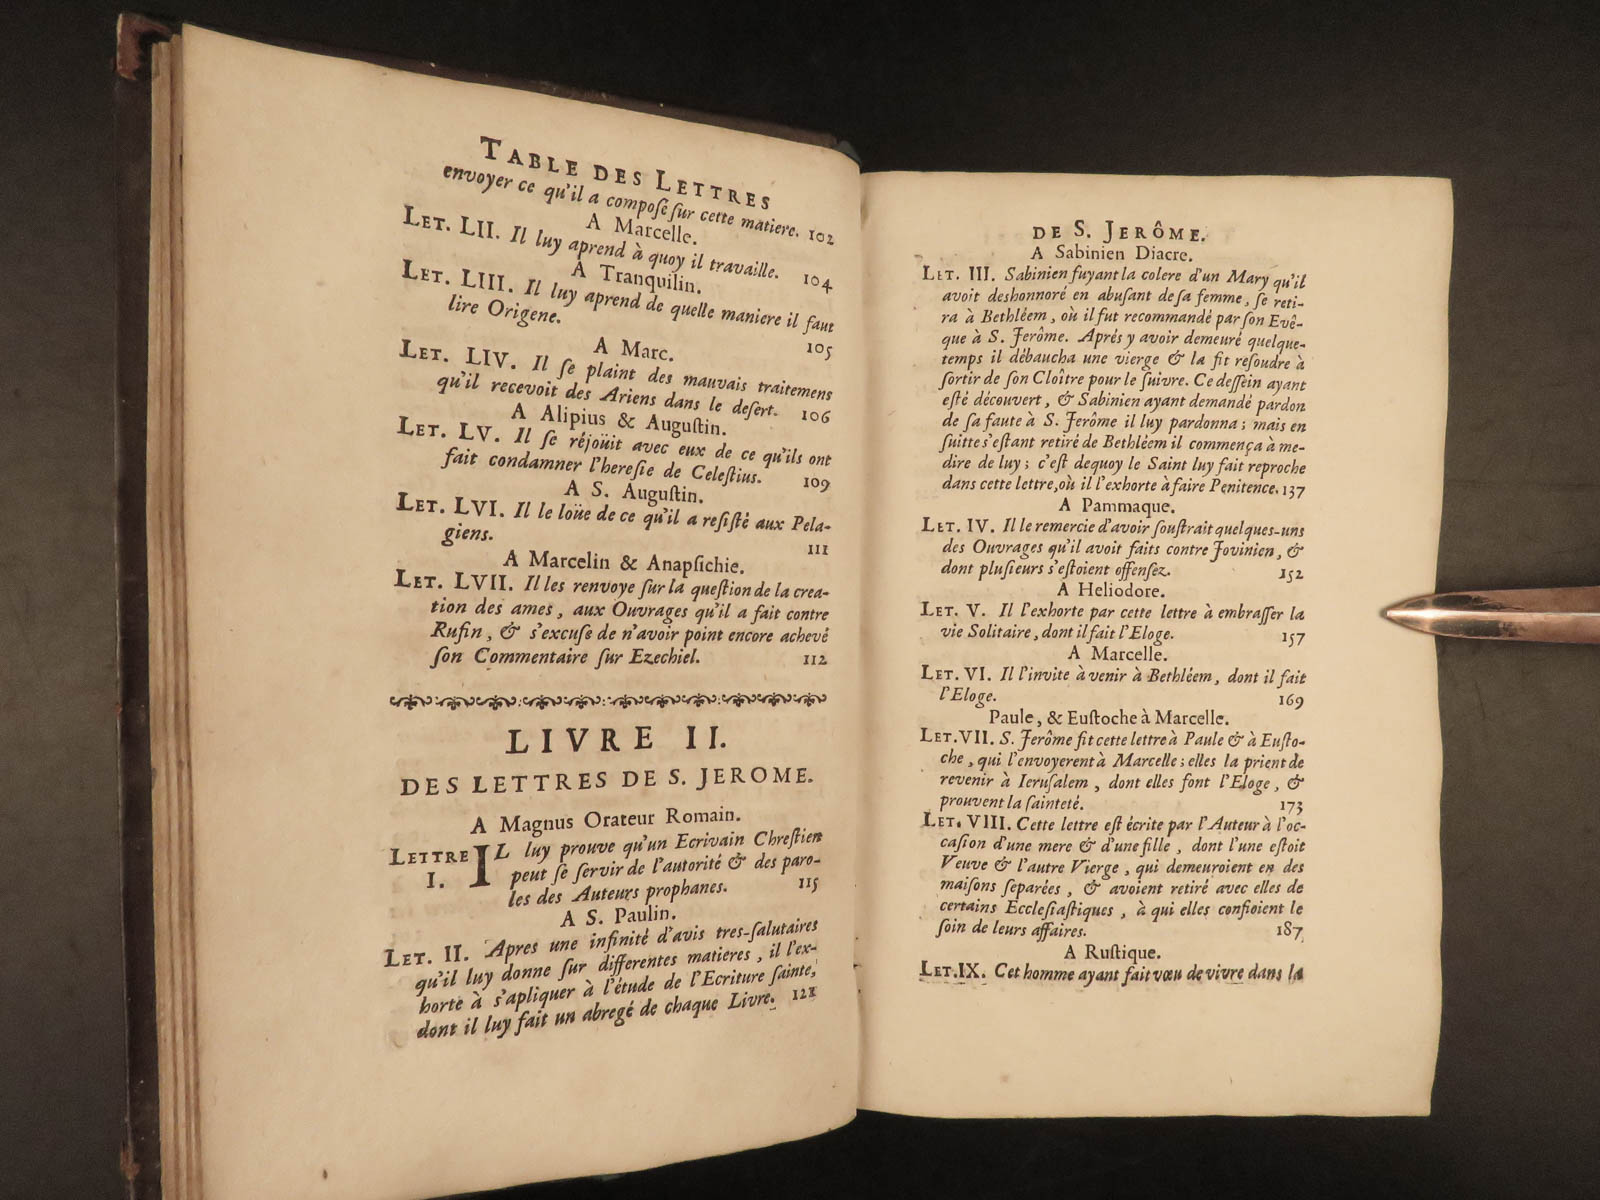 TABLE DES LETTRES
envoyer ce qu'il a composé sur cette matiere. 102
A Marcelle.
LET. LII. Il luy aprend à quoy il travaille. 104
A Tranquilin.
LET. LIII. Il luy aprend de quelle maniere il faut
lire Origene. 105
A Marc.
LET. LIV. Il se plaint des mauvais traitemens
qu'il recevoit des Ariens dans le desert. 106
A Alipius & Augustin.
LET. LV. Il se réjoüit avec eux de ce qu'ils ont
fait condamner l'heresie de Celestius. 109
A S. Augustin.
LET. LVI. Il le loüe de ce qu'il a resisté aux Pela-
giens. 111
A Marcelin & Anapsichie.
LET. LVII. Il les renvoye sur la question de la crea-
tion des ames, aux Ouvrages qu'il a fait contre
Rufin, & s'excuse de n'avoir point encore achevé
son Commentaire sur Ezechiel. 112
LIVRE II.
DES LETTRES DE S. JEROME.
A Magnus Orateur Romain.
LETTRE I. IL luy prouve qu'un Ecrivain Chrestien
peut se servir de l'autorité & des paro-
les des Auteurs prophanes. 115
A S. Paulin.
LET. II. Apres une infinité d'avis tres-salutaires
qu'il luy donne sur differentes matieres, il l'ex-
horte à s'apliquer à l'étude de l'Ecriture sainte,
dont il luy fait un abregé de chaque Livre. 121
DE S. JERÔME.
A Sabinien Diacre.
LET. III. Sabinien fuyant la colere d'un Mary qu'il
avoit deshonnoré en abusant de sa femme, se reti-
ra à Bethléem, où il fut recommandé par son Evê-
que à S. Jerôme. Aprés y avoir demeuré quelque-
temps il débaucha une vierge & la fit resoudre à
sortir de son Cloître pour le suivre. Ce dessein ayant
esté découvert, & Sabinien ayant demandé pardon
de sa faute à S. Jerôme il luy pardonna; mais en
suitte s'estant retiré de Bethléem il commença à me-
dire de luy; c'est dequoy le Saint luy fait reproche
dans cette lettre, où il l'exhorte à faire Penitence. 137
A Pammaque.
LET. IV. Il le remercie d'avoir soustrait quelques-uns
des Ouvrages qu'il avoit faits contre Jovinien, &
dont plusieurs s'estoient offensez. 152
A Heliodore.
LET. V. Il l'exhorte par cette lettre à embrasser la
vie Solitaire, dont il fait l'Eloge. 157
A Marcelle.
LET. VI. Il l'invite à venir à Bethléem, dont il fait
l'Eloge. 169
Paule, & Eustoche à Marcelle.
LET. VII. S. Jerôme fit cette lettre à Paule & à Eusto-
che, qui l'envoyerent à Marcelle; elles la prient de
revenir à Ierusalem, dont elles font l'Eloge, &
prouvent la sainteté. 173
LET. VIII. Cette lettre est écrite par l'Auteur à l'oc-
casion d'une mere & d'une fille, dont l'une estoit
Veuve & l'autre Vierge, qui demeuroient en des
maisons separées, & avoient retiré avec elles de
certains Ecclesiastiques, à qui elles confioient le
soin de leurs affaires. 187
A Rustique.
LET. IX. Cet homme ayant fait vœu de vivre dans la